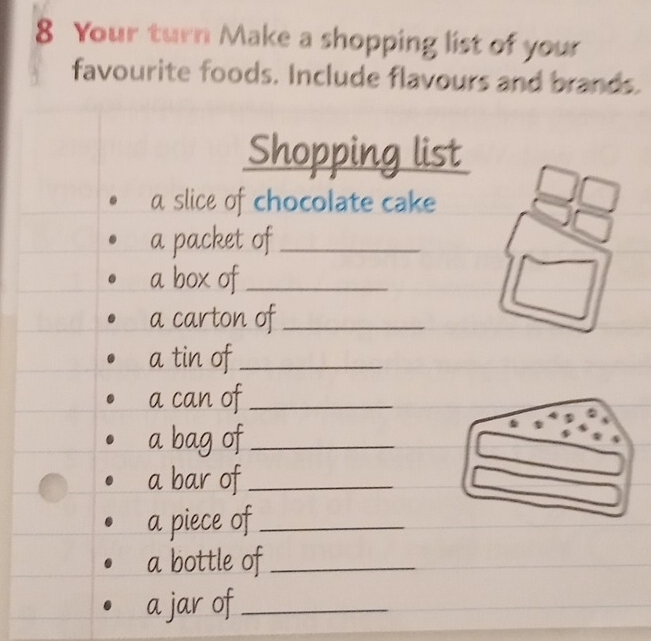 8 Your turn Make a shopping list of your
favourite foods. Include flavours and brands.
Shopping list
• a slice of chocolate cake
• a packet of ___________
• a box of ___________
• a carton of ___________
• a tin of ___________
• a can of ___________
• a bag of ___________
• a bar of ___________
• a piece of ___________
• a bottle of ___________
• a jar of ___________